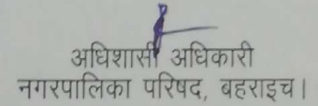 अधिशासी अधिकारी
नगरपालिका परिषद, बहराइच।